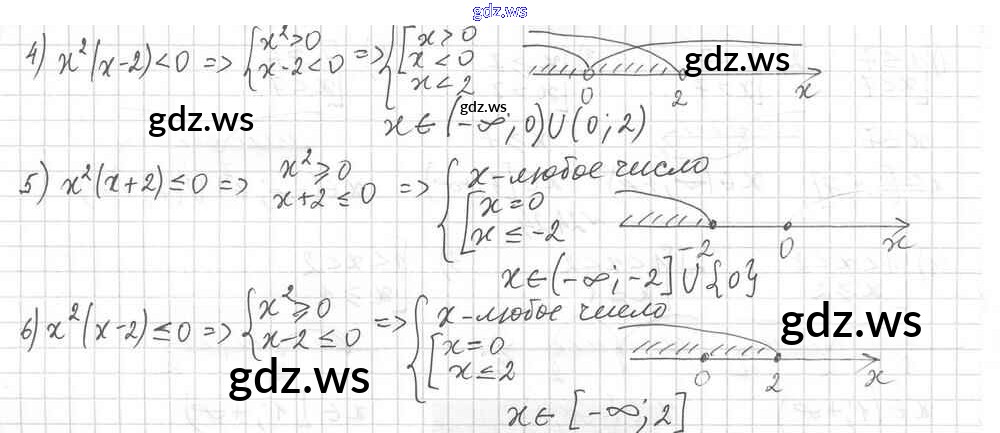 gdz.ws
4) x²(x-2)<0 => { x²>0 x-2<0 => { [ x>0 x<0 x<2 0 2 x gdz.ws
gdz.ws x∈(-∞; 0)∪(0; 2) gdz.ws
5) x²(x+2)≤0 => x²≥0 x+2≤0 => { x-любое число [ x=0 x≤-2 -2 0 x
x∈(-∞; -2]∪{0}
6) x²(x-2)≤0 => { x²≥0 x-2≤0 => { x-любое число [ x=0 x≤2 0 2 x
gdz.ws gdz.ws
x∈[-∞; 2]